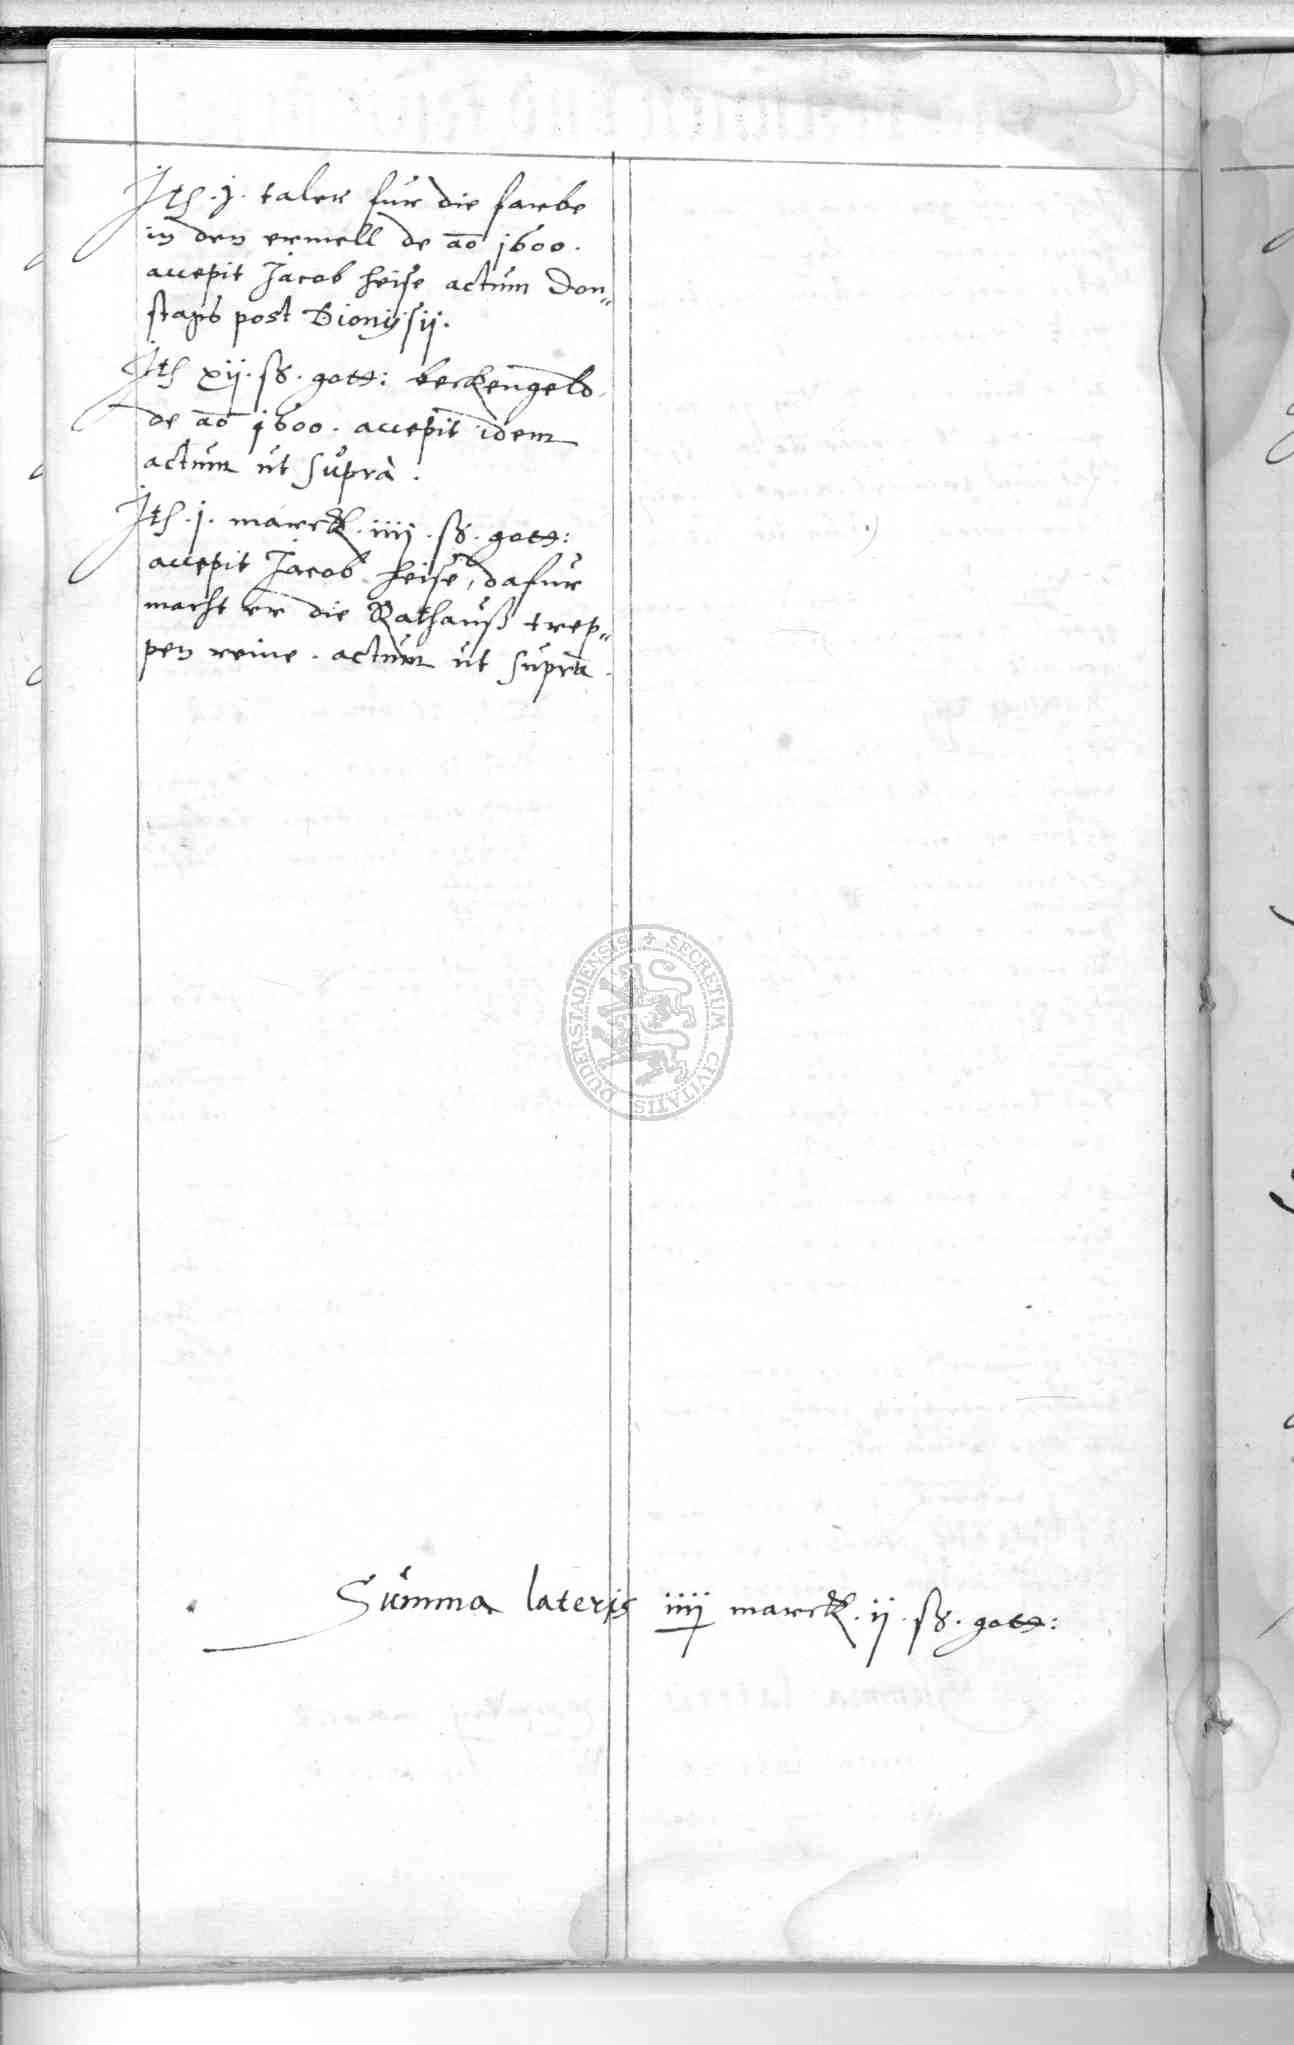 Jtß. j. taler für die farbe
in den ermell de ao 1600.
accepit Jacob heise actum Don„
stags post Dionÿsij.
Jtß xij. sß. gott: beckengeld
de ao 1600. accepit idem
actum ut supra.
Jtß. j. marck. iiij. sß. gott:
accepit Jacob heise, dafür
macht er die Rathauß trep„
pen reine. actum ut supra.
SECRETUM CIVITATIS DUDERSTADIENSIS
Summa lateris iiij marck. ij. sß. gott: